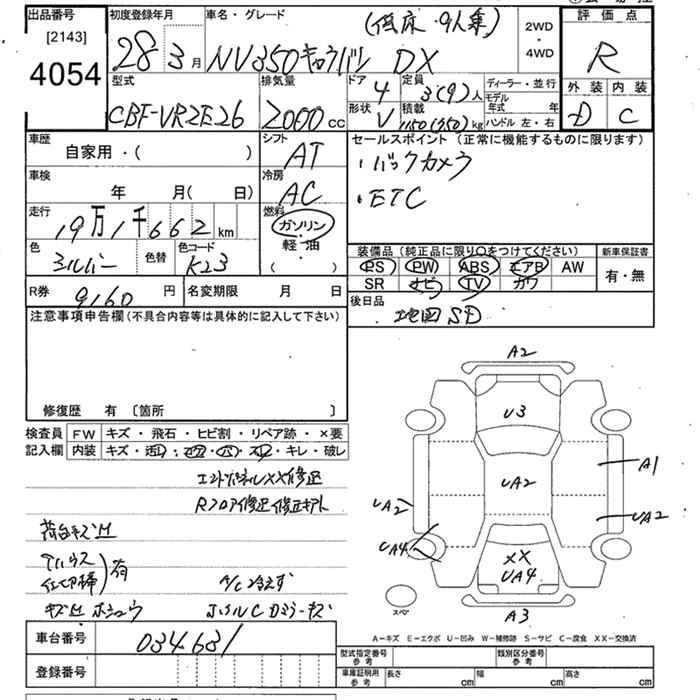 出品番号 初度登録年月 車名・グレード (低床・9人乗) 2WD・4WD 評価点
[2143] 28 3月 NV350キャラバン DX R
4054
型式 排気量 ドア 4 定員 3(9)人 ディーラー・並行 外装 内装
CBF-VR2E26 2000cc 形状 V 積載 kg モデル年式 年 D C
ハンドル 左・右
車歴 シフト セールスポイント (正常に機能するものに限ります)
自家用・( ) AT ・バックカメラ
車検 冷房 ・ETC
年 月( 日) AC
走行 燃料
19万1千662km ガソリン
色 色替 色コード 軽・油 装備品 (純正品に限り○をつけてください) 新車保証書
シルバー K23 ( ) PS PW ABS エアB AW 有・無
R券 9160円 名変期限 月 日 SR ナビ TV カワ
後日品
注意事項申告欄(不具合内容等は具体的に記入して下さい) 地図SD
修復歴 有 〔箇所 〕
検査員 FW キズ・飛石・ヒビ割・リペア跡・×要
記入欄 内装 キズ・・キレ・破レ
エンドパネルXX修正
Rフロア修正
荷台キズ
有
A/C冷えず
キズ
A2
U3
A1
UA2
UA2
UA2
UA4
XX
UA4
A3
スペア
A－キズ E－エクボ U－凹み W－補修跡 S－サビ C－腐食 XX－交換済
車台番号 034681
登録番号
型式指定番号 参考 類別区分番号 参考
車庫証明用 参考 長さ cm 幅 cm 高さ cm